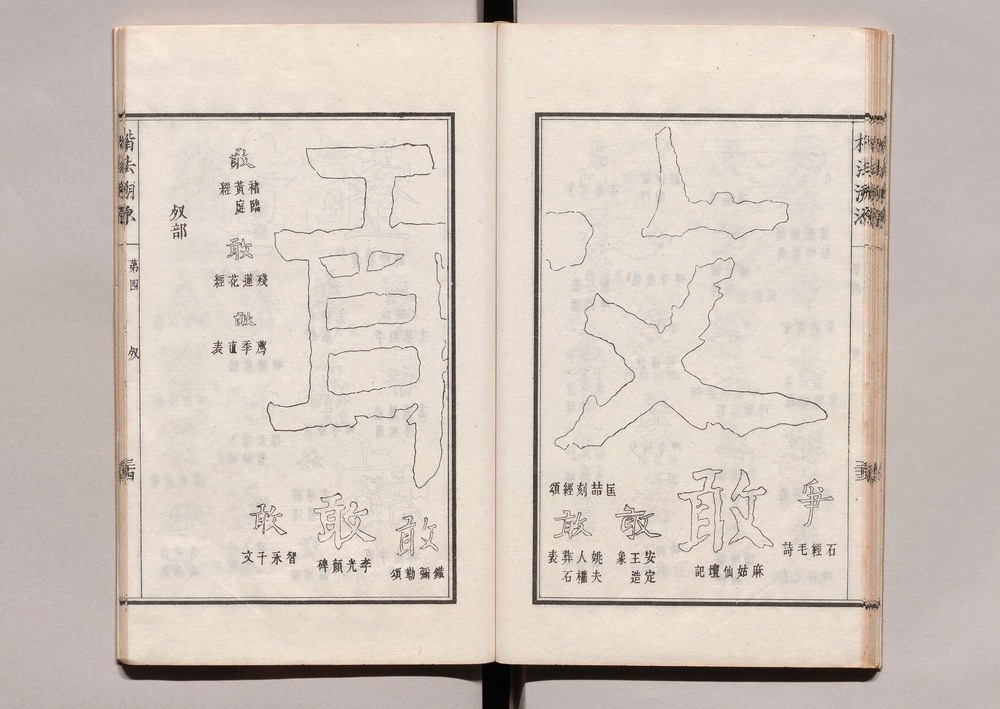 爭
石經毛詩
敢
麻姑仙壇記
敢
安定王造象
敢
姚夫人權葬石表
敢
匡喆刻經頌
敢
鐵彌勒頌
敢
李光顏碑
敢
智永千文
敢
褚臨黃庭經
敢
殘蓮花經
敢
薦季直表
部
楷法溯源
第四